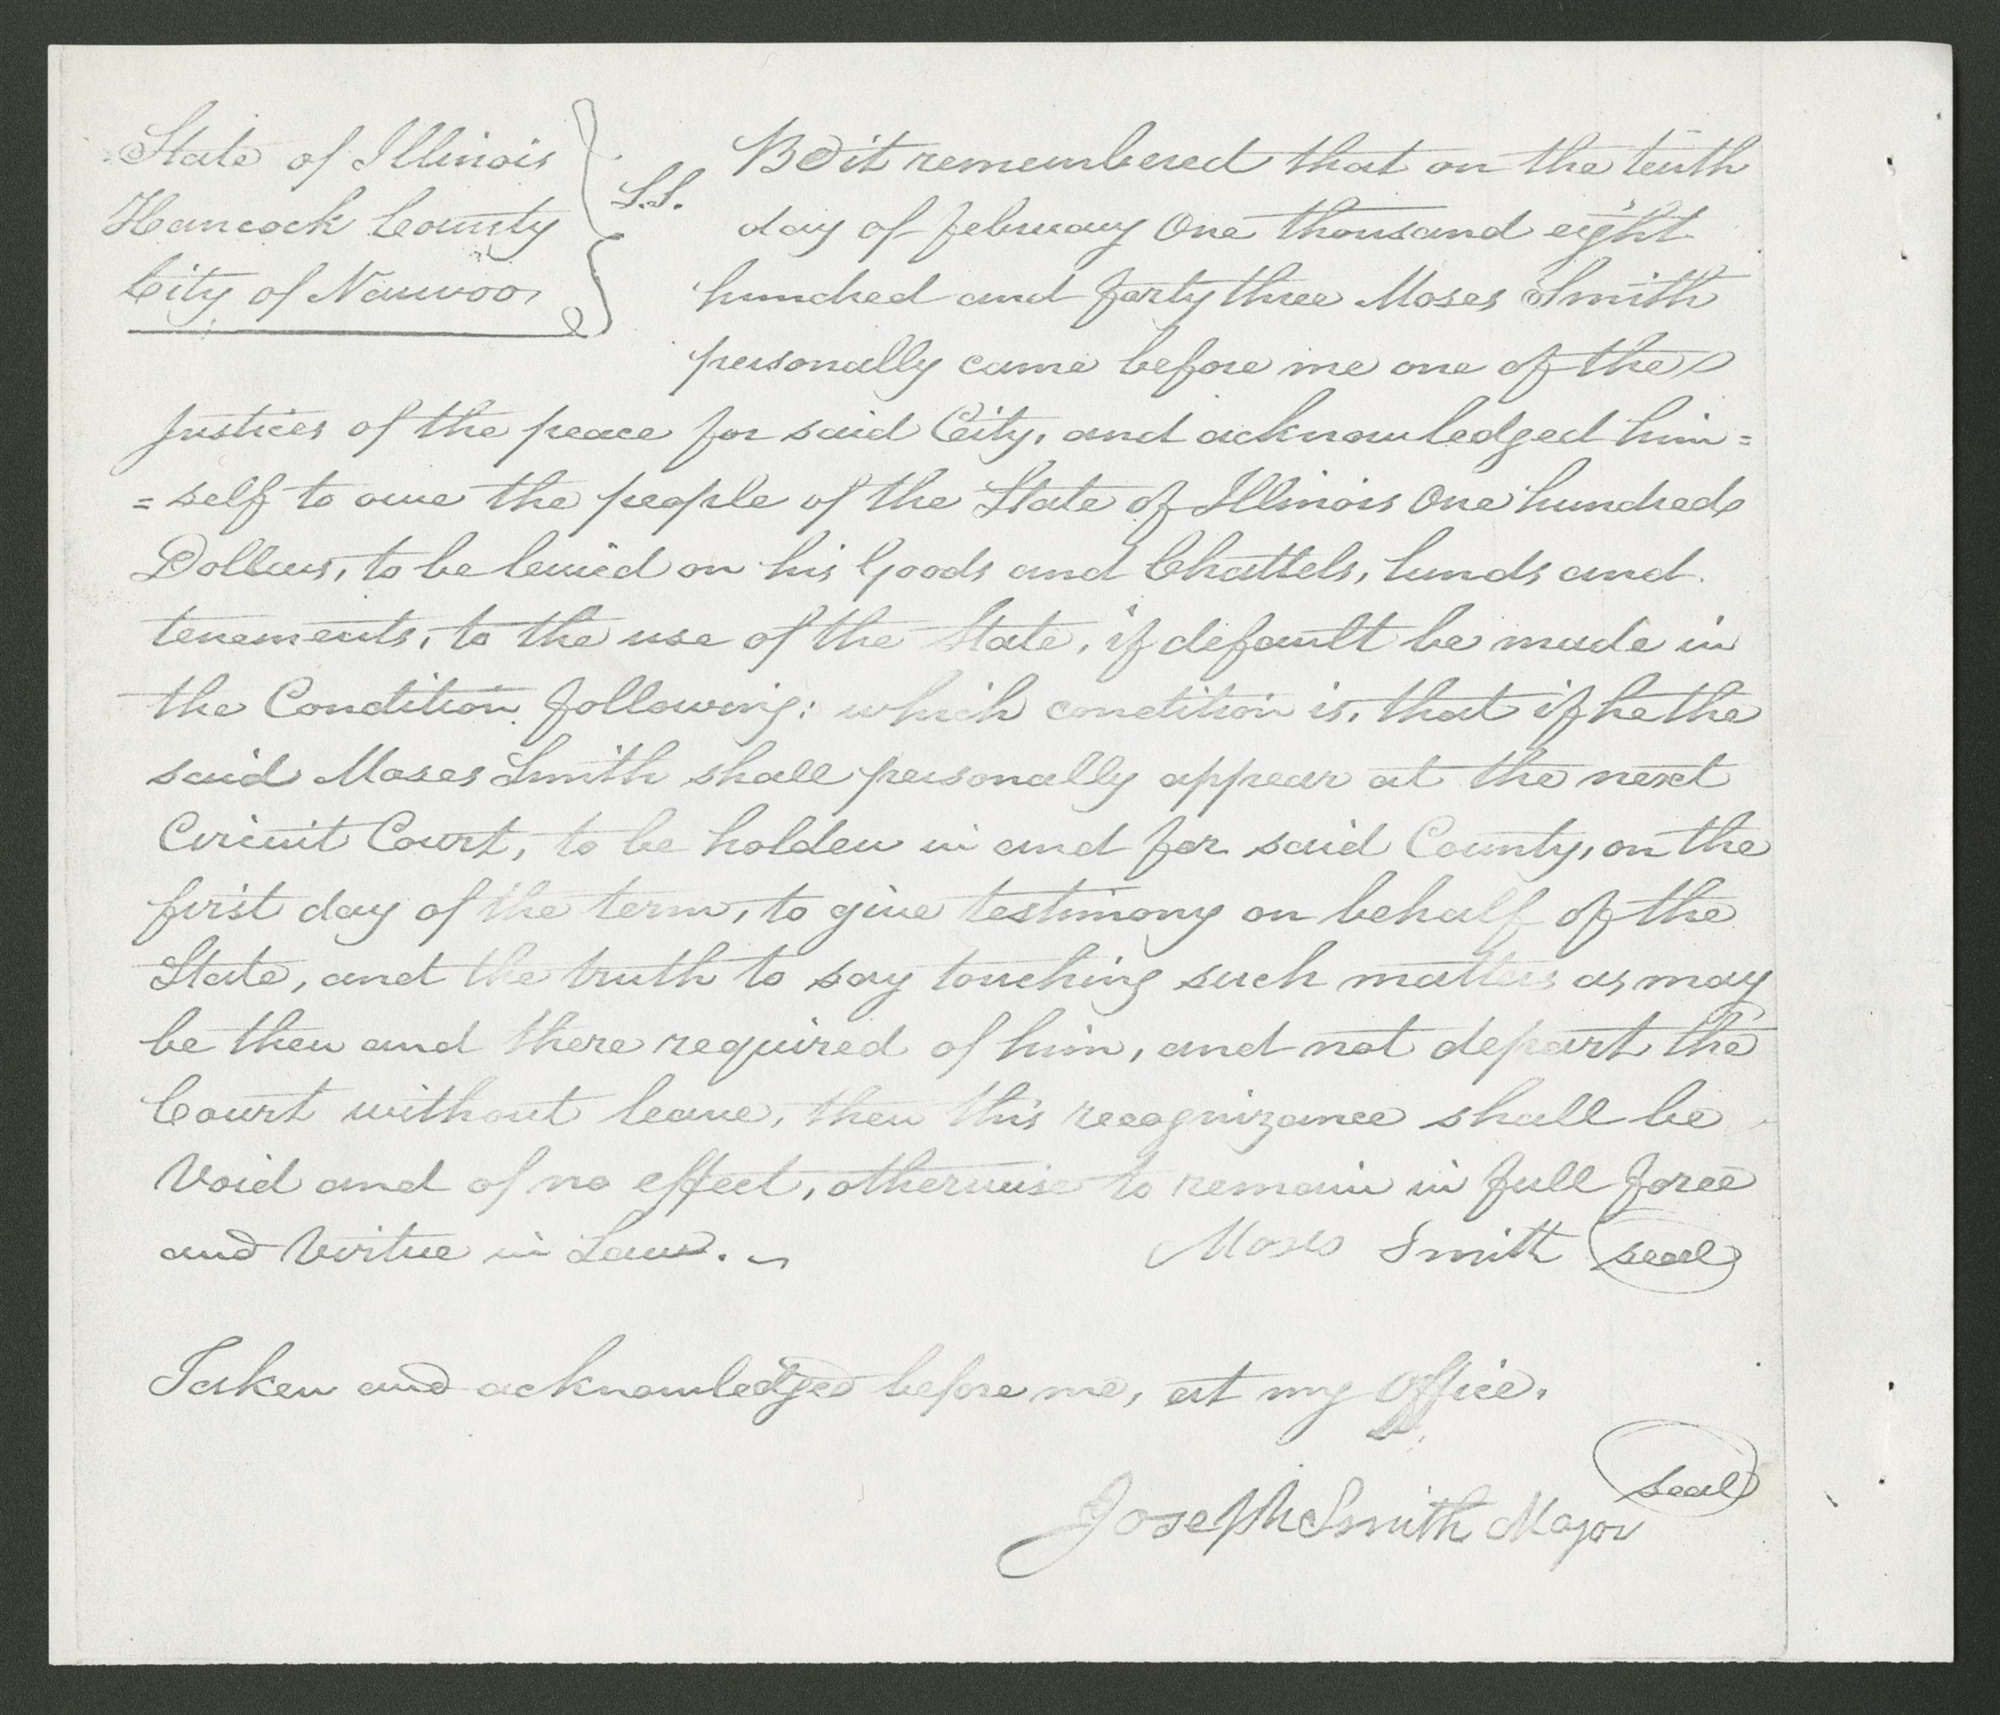 State of Illinois
Hancock County
City of Nauvoo
S.S.
Be it remembered that on the tenth
day of february One thousand eight
hundred and forty three Moses Smith
personally came before me one of the
Justices of the peace for said City, and acknowledged him=
=self to owe the people of the State of Illinois One hundred
Dollars, to be levied on his Goods and Chattels, lands and
tenements, to the use of the State, if default be made in
the Condition following: which condition is, that if he the
said Moses Smith shall personally appear at the next
Circuit Court, to be holden in and for said County, on the
first day of the term, to give testimony on behalf of the
State, and the truth to say touching such matters as may
be then and there required of him, and not depart the
Court without leave, then this recognizance shall be
Void and of no effect, otherwise to remain in full force
and Virtue in Law.
Moses Smith seal
Taken and acknowledged before me, at my Office.
seal
Joseph Smith Mayor